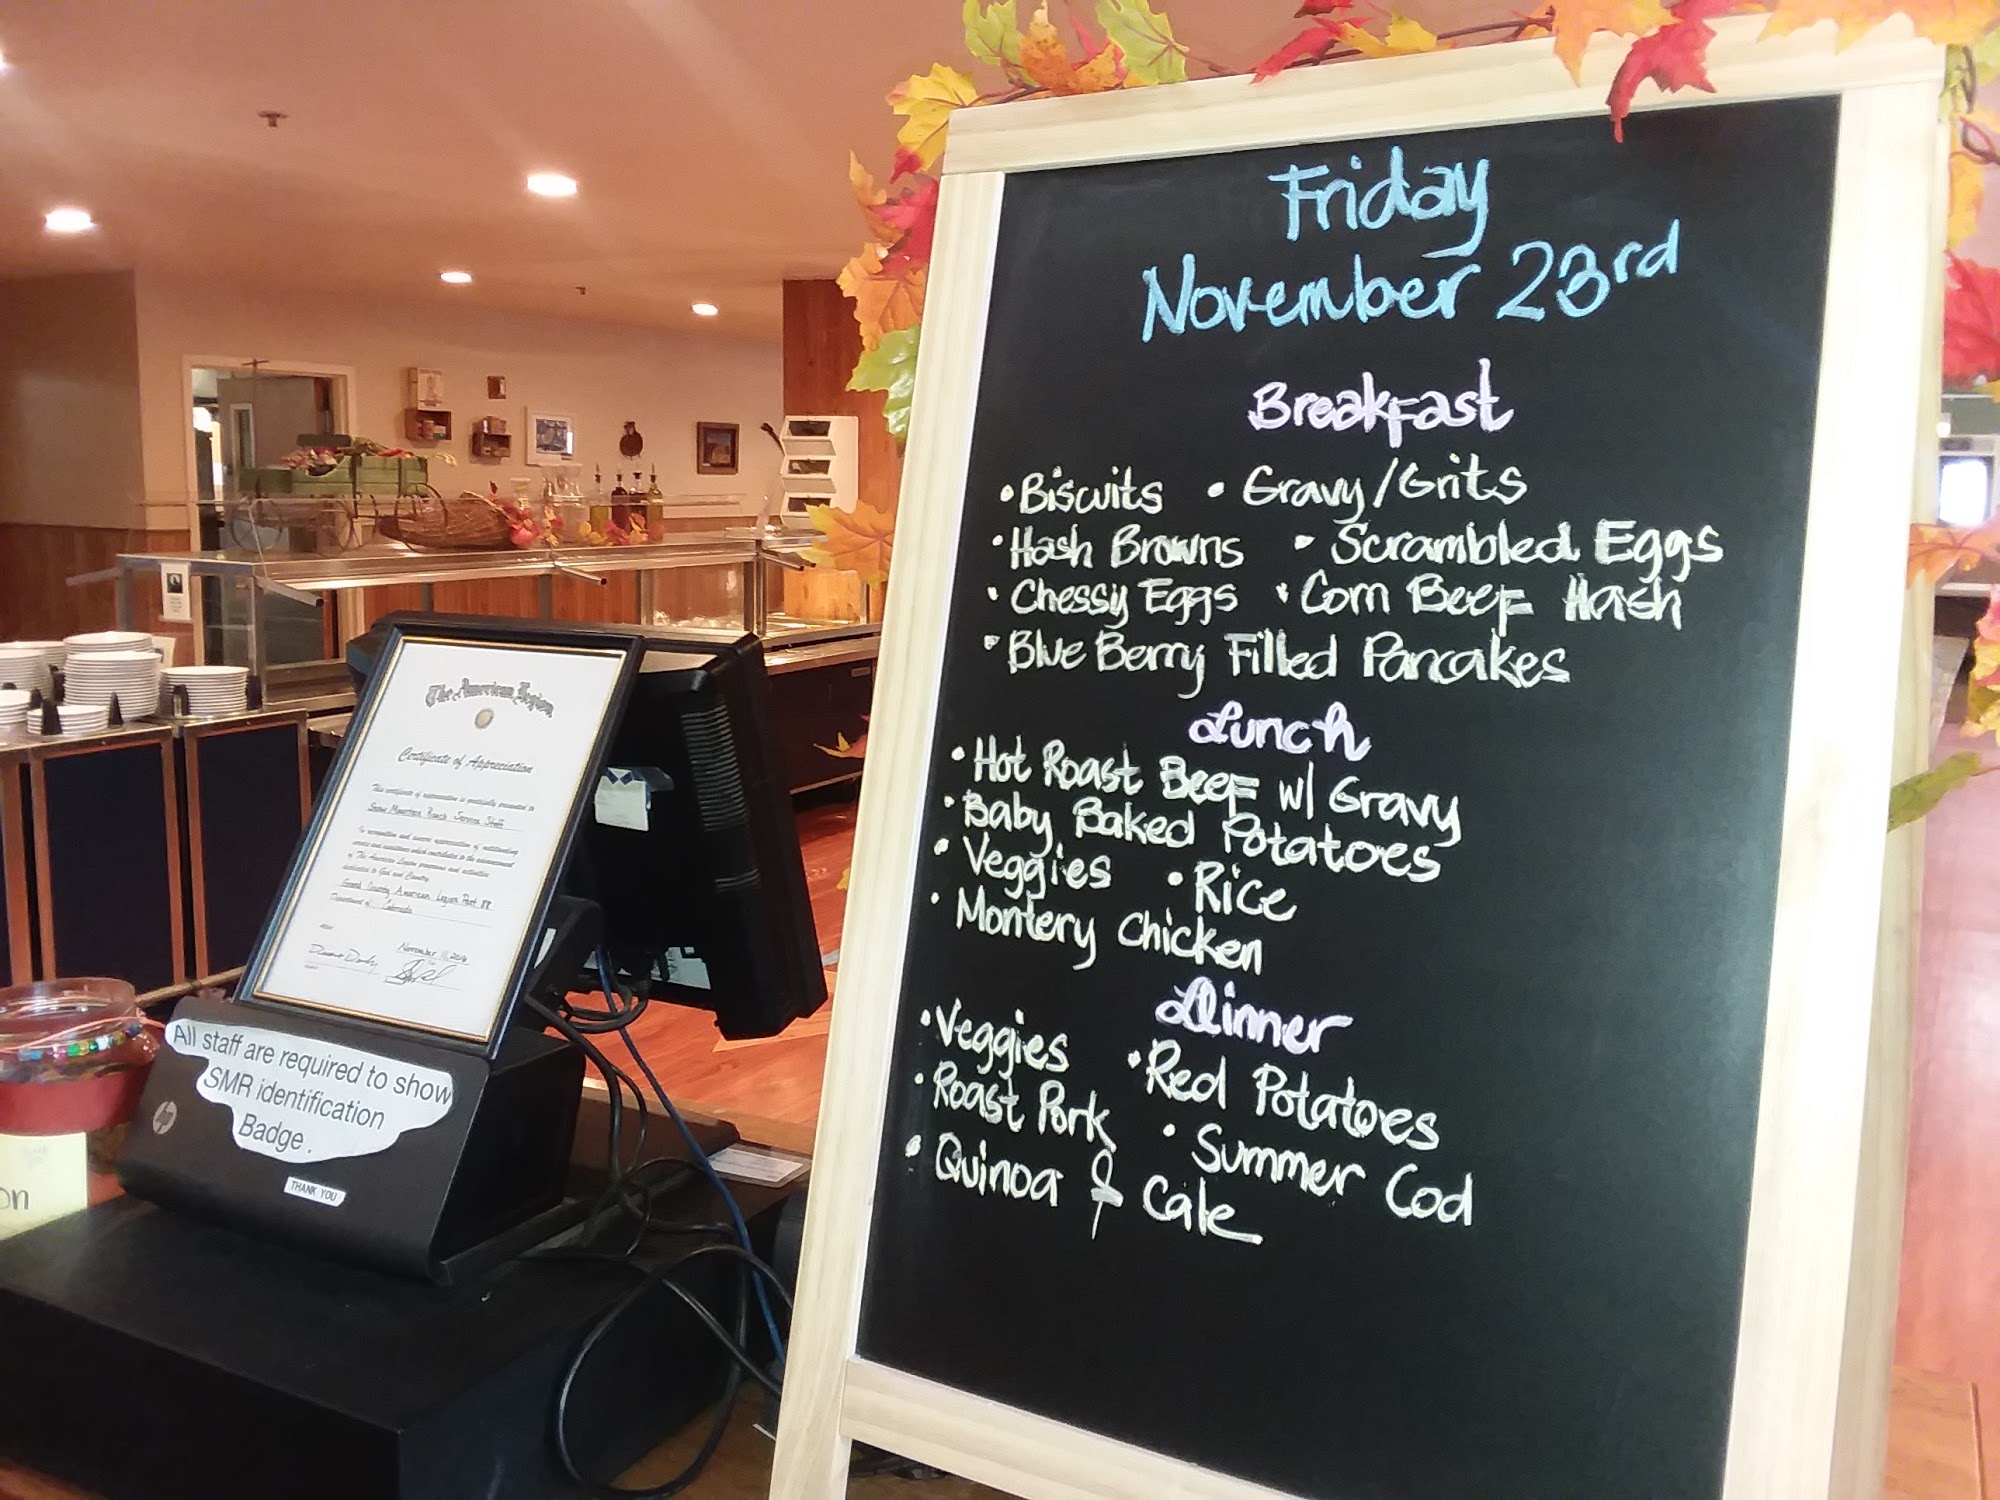 Friday
November 23rd
Breakfast
• Biscuits • Gravy/Grits
• Hash Browns • Scrambled Eggs
• Chessy Eggs • Corn Beef Hash
• Blue Berry Filled Pancakes
Lunch
• Hot Roast Beef w/ Gravy
• Baby Baked Potatoes
• Veggies • Rice
• Montery Chicken
Dinner
• Veggies • Red Potatoes
• Roast Pork • Summer Cod
• Quinoa & Cale
The American Legion
Certificate of Appreciation
This certificate of appreciation is gratefully presented to
Snow Mountain Ranch Service Staff
In recognition and sincere appreciation of outstanding
service and assistance which contributed to the advancement
of The American Legion programs and activities
dedicated to God and Country.
Grand County American Legion Post 88
Department of Colorado
November 11, 2016
All staff are required to show
SMR identification
Badge.
THANK YOU
hp
on